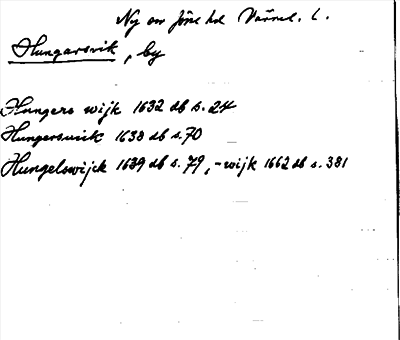 Ny sn Jöns hd Värml. l.
Hungarsvik, by
Hungers wijk 1632 db s. 24
Hungersuick 1638 db s. 70
Hungelswijck 1639 db s. 79, -wijk 1662 db s. 381